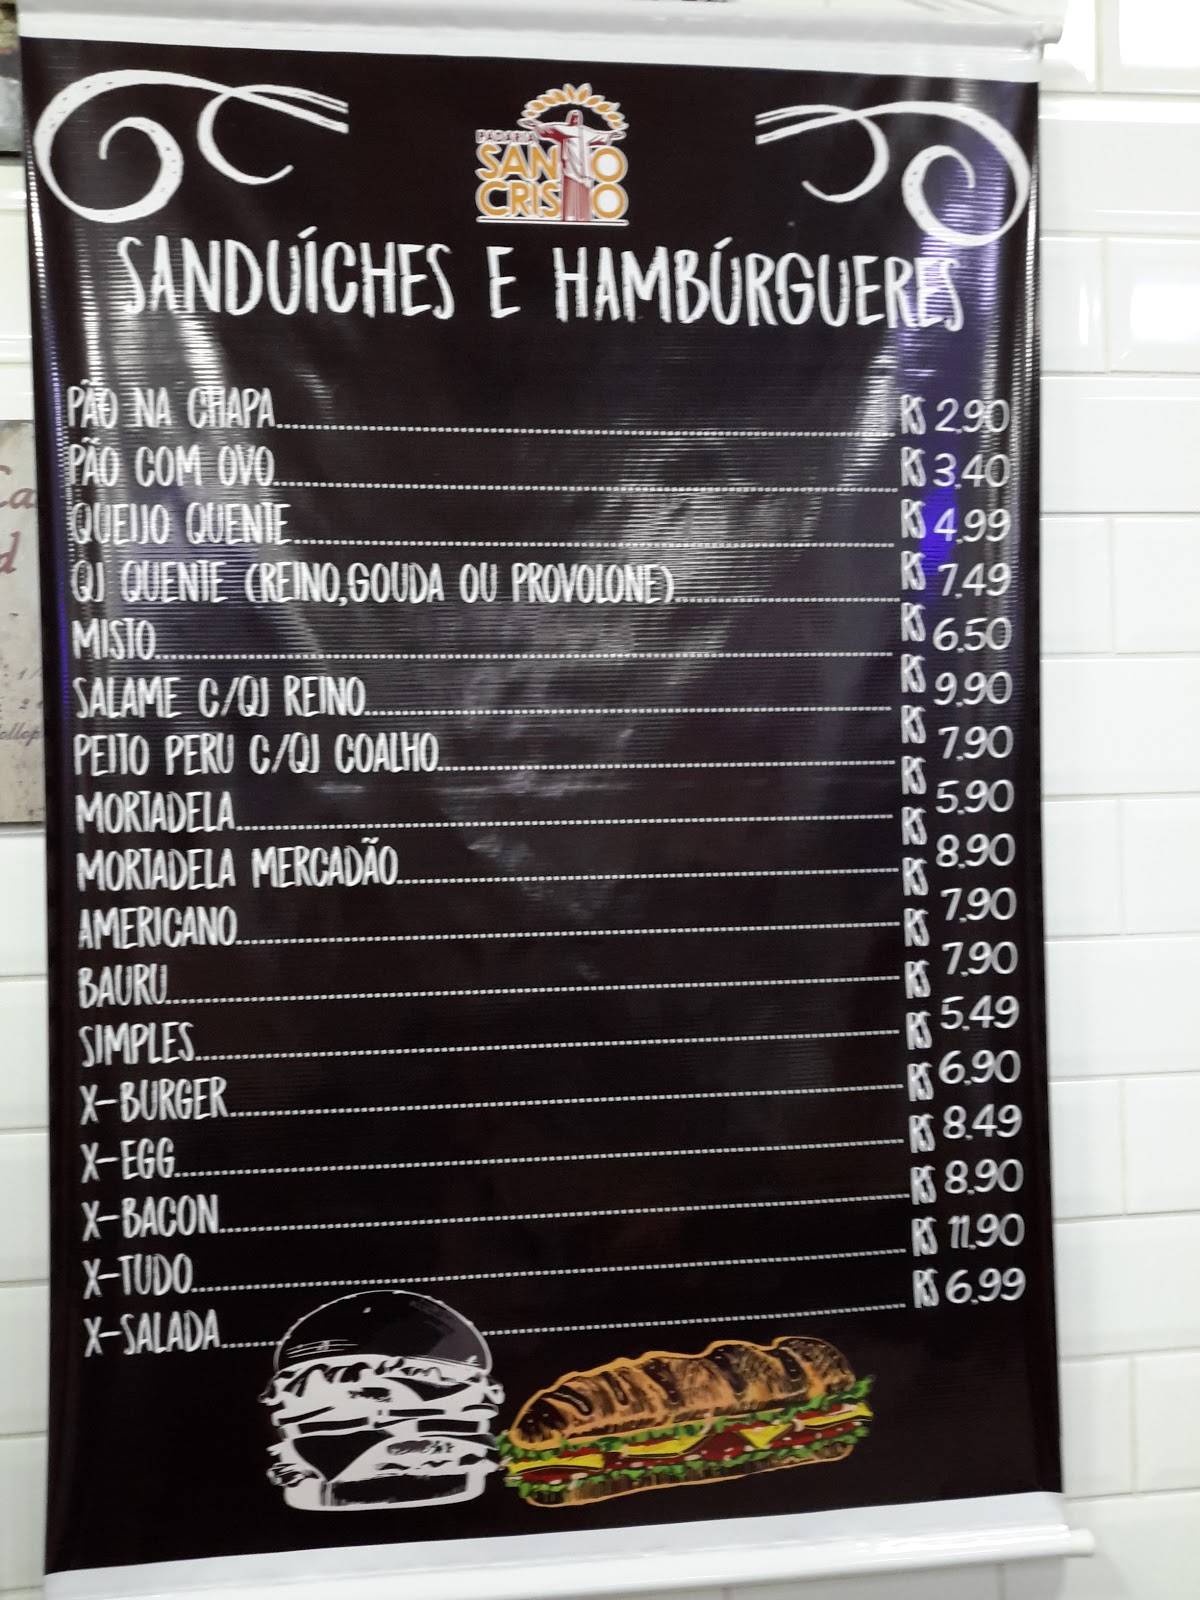 PADARIA
SANTO
CRISTO
SANDUÍCHES E HAMBÚRGUERES
PÃO NA CHAPA R$ 2,90
PÃO COM OVO R$ 3,40
QUEIJO QUENTE R$ 4,99
QJ QUENTE (REINO,GOUDA OU PROVOLONE) R$ 7,49
MISTO R$ 6,50
SALAME C/QJ REINO R$ 9,90
PEITO PERU C/QJ COALHO R$ 7,90
MORTADELA R$ 5,90
MORTADELA MERCADÃO R$ 8,90
AMERICANO R$ 7,90
BAURU R$ 7,90
SIMPLES R$ 5,49
X-BURGER R$ 6,90
X-EGG R$ 8,49
X-BACON R$ 8,90
X-TUDO R$ 11,90
X-SALADA R$ 6,99